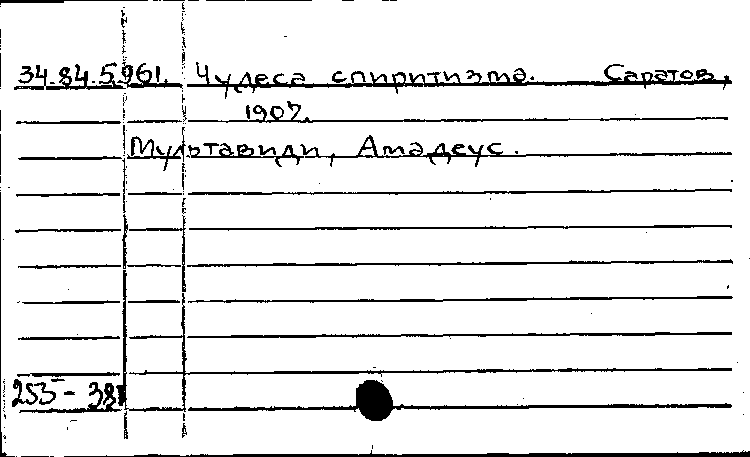 34.84.5.961. Чудеса спиритизма. Саратов,
1907.
Мультавиди, Амадеус.
253 - 381